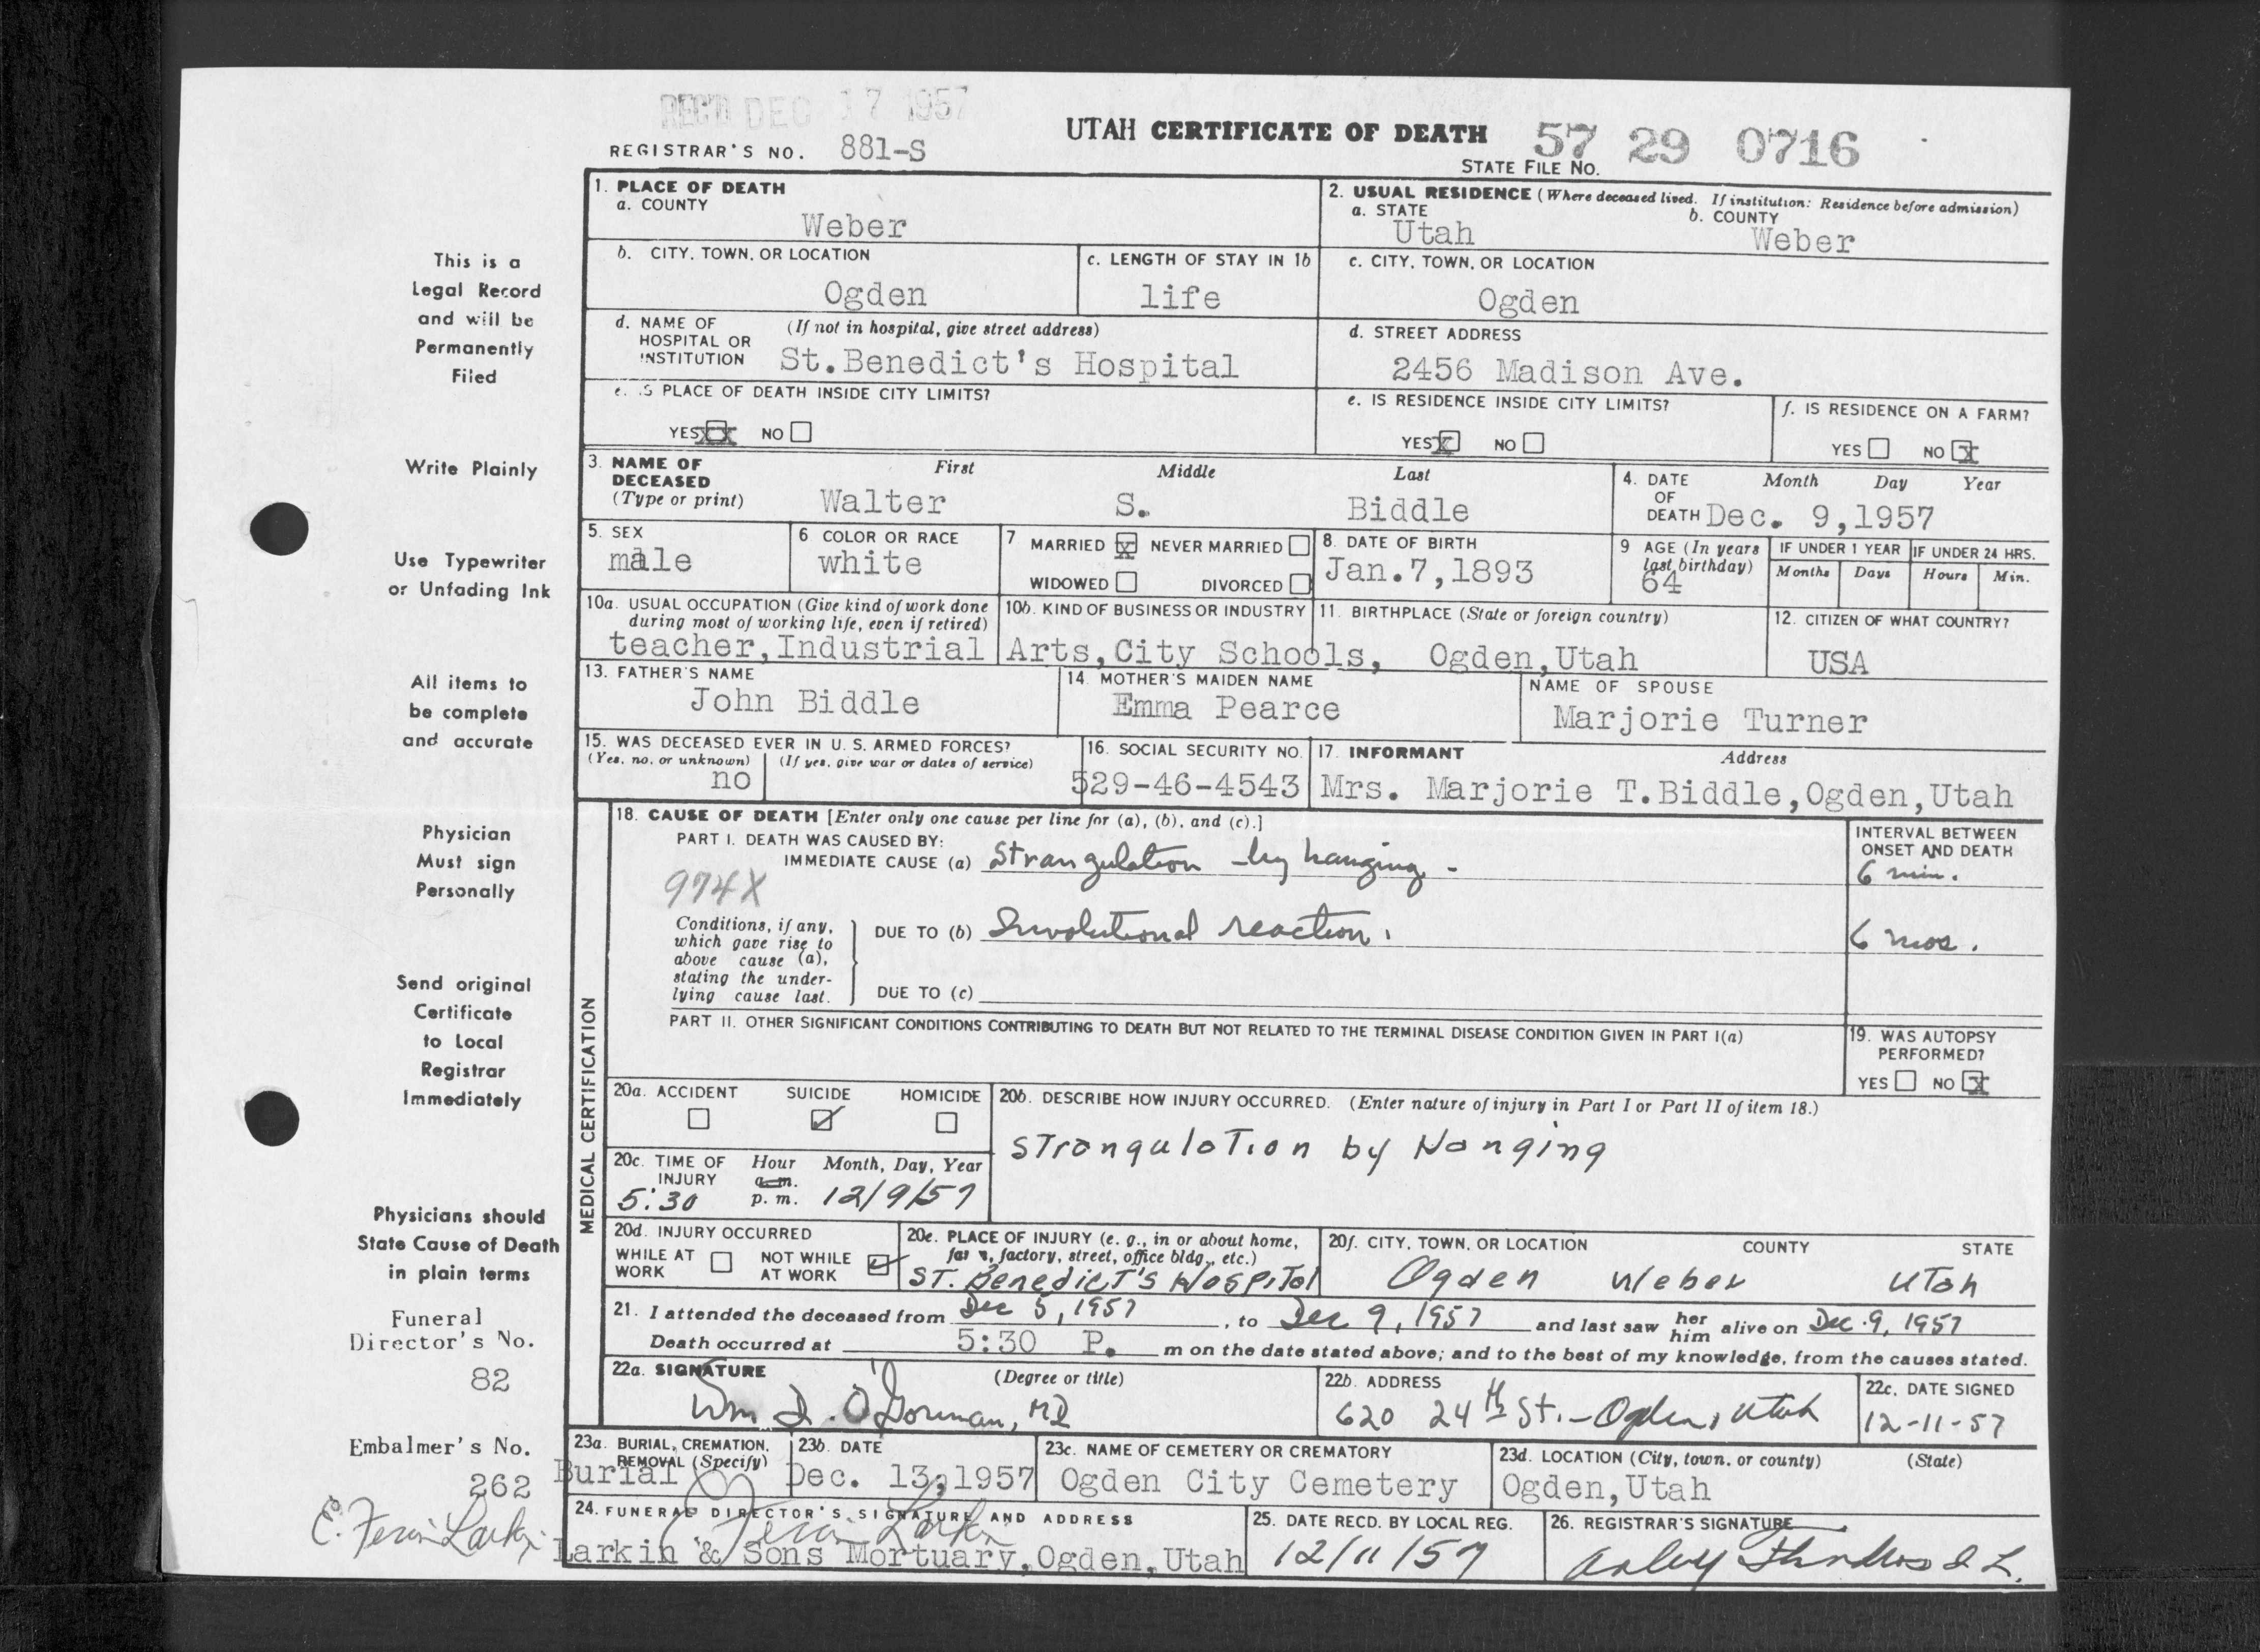 REC'D DEC 17 1957
REGISTRAR'S NO. 881-S
UTAH CERTIFICATE OF DEATH 57 29 0716
STATE FILE NO.
This is a
Legal Record
and will be
Permanently
Filed
Write Plainly
Use Typewriter
or Unfading Ink
All items to
be complete
and accurate
Physician
Must sign
Personally
Send original
Certificate
to Local
Registrar
Immediately
Physicians should
State Cause of Death
in plain terms
Funeral
Director's No.
82
Embalmer's No.
262
E. Ferrin Larkin
1. PLACE OF DEATH
a. COUNTY
Weber
2. USUAL RESIDENCE (Where deceased lived. If institution: Residence before admission)
a. STATE
Utah
b. COUNTY
Weber
b. CITY, TOWN, OR LOCATION
Ogden
c. LENGTH OF STAY IN 1b
life
c. CITY, TOWN, OR LOCATION
Ogden
d. NAME OF HOSPITAL OR INSTITUTION (If not in hospital, give street address)
St.Benedict's Hospital
d. STREET ADDRESS
2456 Madison Ave.
e. IS PLACE OF DEATH INSIDE CITY LIMITS?
YES XX NO
e. IS RESIDENCE INSIDE CITY LIMITS?
YES X NO
f. IS RESIDENCE ON A FARM?
YES NO X
3. NAME OF DECEASED (Type or print)
First Middle Last
Walter S. Biddle
4. DATE OF DEATH
Month Day Year
Dec. 9,1957
5. SEX
male
6 COLOR OR RACE
white
7 MARRIED X NEVER MARRIED
WIDOWED DIVORCED
8. DATE OF BIRTH
Jan.7,1893
9 AGE (In years last birthday)
64
IF UNDER 1 YEAR IF UNDER 24 HRS.
Months Days Hours Min.
10a. USUAL OCCUPATION (Give kind of work done during most of working life, even if retired)
10b. KIND OF BUSINESS OR INDUSTRY
11. BIRTHPLACE (State or foreign country)
12. CITIZEN OF WHAT COUNTRY?
teacher,Industrial Arts,City Schools, Ogden,Utah USA
13. FATHER'S NAME
John Biddle
14. MOTHER'S MAIDEN NAME
Emma Pearce
NAME OF SPOUSE
Marjorie Turner
15. WAS DECEASED EVER IN U. S. ARMED FORCES?
(Yes, no, or unknown) (If yes, give war or dates of service)
no
16. SOCIAL SECURITY NO.
529-46-4543
17. INFORMANT Address
Mrs. Marjorie T.Biddle,Ogden,Utah
MEDICAL CERTIFICATION
18. CAUSE OF DEATH [Enter only one cause per line for (a), (b), and (c).]
PART I. DEATH WAS CAUSED BY:
IMMEDIATE CAUSE (a) Strangulation - by hanging -
974X
INTERVAL BETWEEN ONSET AND DEATH
6 min.
Conditions, if any, which gave rise to above cause (a), stating the underlying cause last.
DUE TO (b) Involutional reaction.
6 mos.
DUE TO (c)
PART II. OTHER SIGNIFICANT CONDITIONS CONTRIBUTING TO DEATH BUT NOT RELATED TO THE TERMINAL DISEASE CONDITION GIVEN IN PART I(a)
19. WAS AUTOPSY PERFORMED?
YES NO X
20a. ACCIDENT SUICIDE HOMICIDE
20b. DESCRIBE HOW INJURY OCCURRED. (Enter nature of injury in Part I or Part II of item 18.)
Strangulation by Hanging
20c. TIME OF INJURY Hour Month, Day, Year
a.m.
5:30 p. m. 12/9/57
20d. INJURY OCCURRED
WHILE AT WORK NOT WHILE AT WORK
20e. PLACE OF INJURY (e. g., in or about home, farm, factory, street, office bldg., etc.)
ST. Benedict's Hospital
20f. CITY, TOWN, OR LOCATION COUNTY STATE
Ogden Weber Utah
21. I attended the deceased from Dec 5, 1957, to Dec 9, 1957 and last saw her him alive on Dec. 9, 1957
Death occurred at 5:30 P. m on the date stated above; and to the best of my knowledge, from the causes stated.
22a. SIGNATURE (Degree or title)
Wm D. O'Gorman, MD
22b. ADDRESS
620 24th St. - Ogden, Utah
22c. DATE SIGNED
12-11-57
23a. BURIAL, CREMATION, REMOVAL (Specify)
Burial
23b. DATE
Dec. 13,1957
23c. NAME OF CEMETERY OR CREMATORY
Ogden City Cemetery
23d. LOCATION (City, town, or county) (State)
Ogden,Utah
24. FUNERAL DIRECTOR'S SIGNATURE AND ADDRESS
Larkin & Sons Mortuary,Ogden,Utah
25. DATE RECD. BY LOCAL REG.
12/11/57
26. REGISTRAR'S SIGNATURE